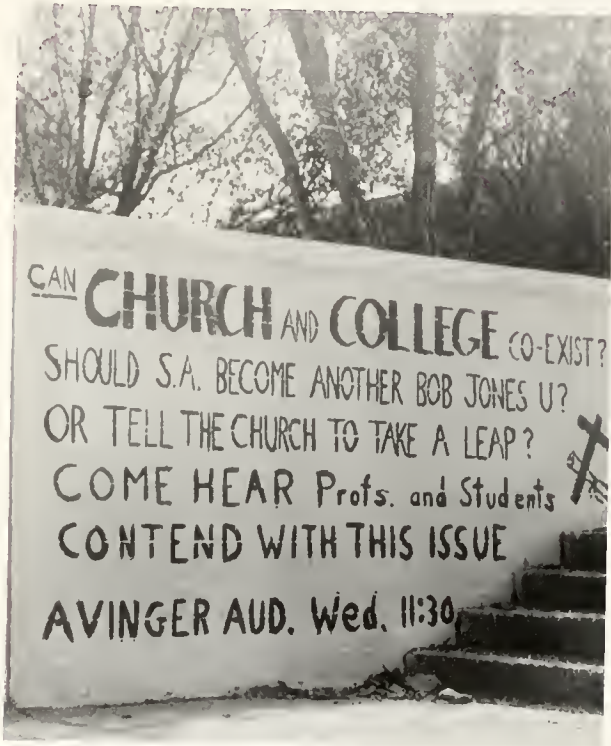 CAN CHURCH AND COLLEGE CO-EXIST?
SHOULD S.A. BECOME ANOTHER BOB JONES U?
OR TELL THE CHURCH TO TAKE A LEAP?
COME HEAR Profs. and Students
CONTEND WITH THIS ISSUE
AVINGER AUD. Wed. 11:30